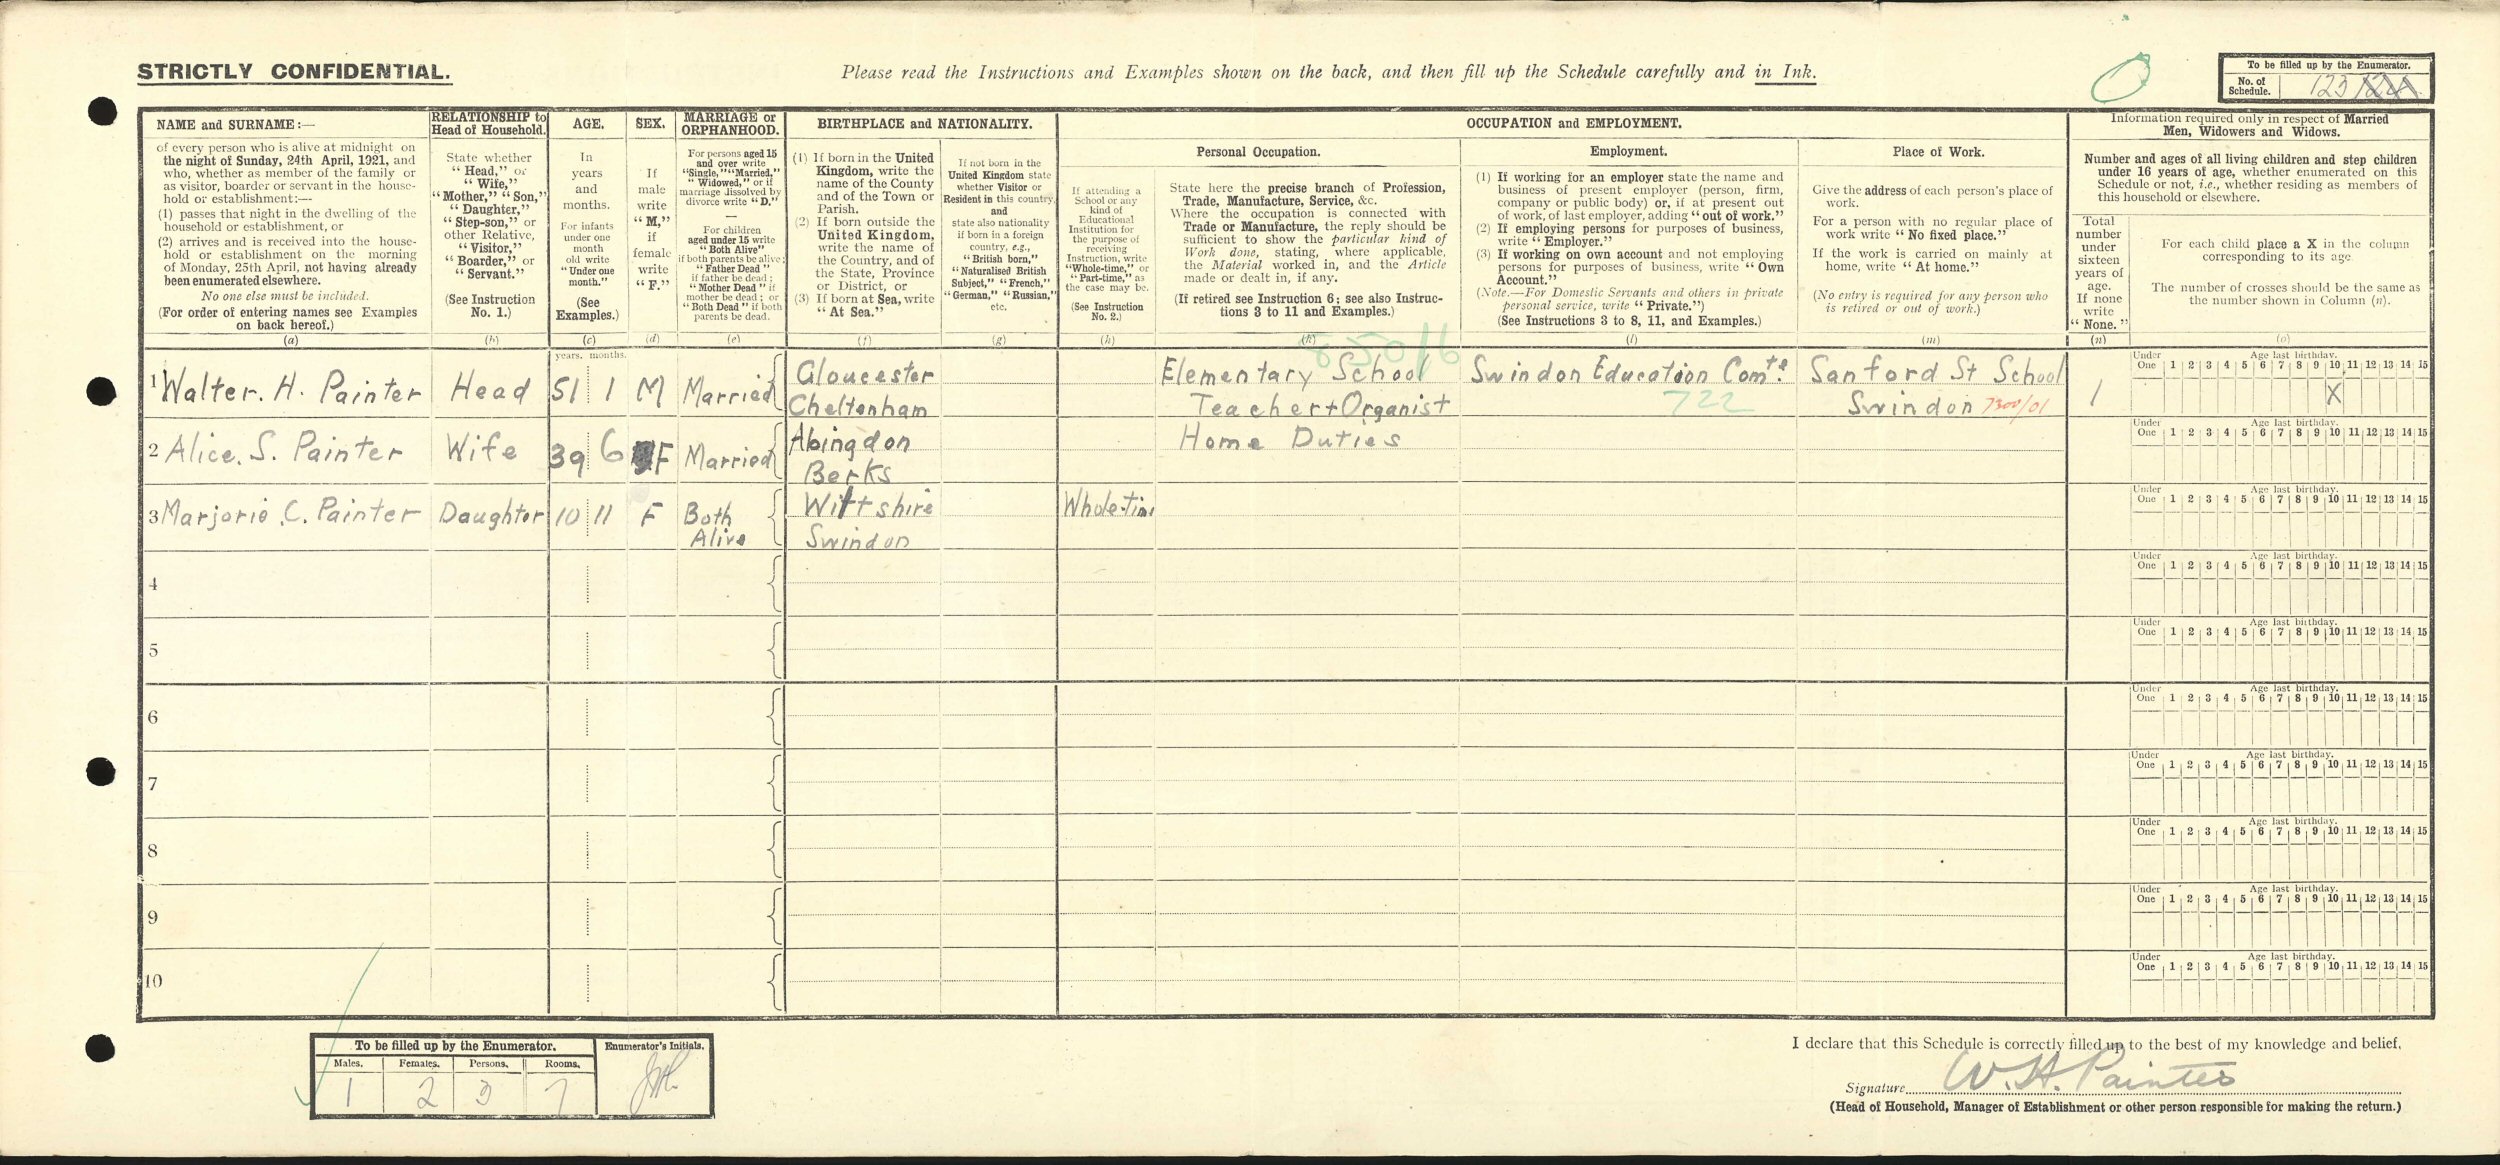 STRICTLY CONFIDENTIAL.
Please read the Instructions and Examples shown on the back, and then fill up the Schedule carefully and in Ink.
To be filled up by the Enumerator.
No. of Schedule. 123 124
NAME and SURNAME:—
of every person who is alive at midnight on
the night of Sunday, 24th April, 1921, and
who, whether as member of the family or
as visitor, boarder or servant in the house-
hold or establishment:—
(1) passes that night in the dwelling of the
household or establishment, or
(2) arrives and is received into the house-
hold or establishment on the morning
of Monday, 25th April, not having already
been enumerated elsewhere.
No one else must be included.
(For order of entering names see Examples
on back hereof.)
(a)
RELATIONSHIP to
Head of Household.
State whether
"Head," or
"Wife,"
"Mother," "Son,"
"Daughter,"
"Step-son," or
other Relative,
"Visitor,"
"Boarder," or
"Servant."
(See Instruction
No. 1.)
(b)
AGE.
In
years
and
months.
For infants
under one
month
old write
"Under one
month."
(See
Examples.)
(c)
SEX.
If
male
write
"M,"
if
female
write
"F."
(d)
MARRIAGE or
ORPHANHOOD.
For persons aged 15
and over write
"Single," "Married,"
"Widowed," or if
marriage dissolved by
divorce write "D."
—
For children
aged under 15 write
"Both Alive"
if both parents be alive;
"Father Dead"
if father be dead;
"Mother Dead" if
mother be dead; or
"Both Dead" if both
parents be dead.
(e)
BIRTHPLACE and NATIONALITY.
(1) If born in the United
Kingdom, write the
name of the County
and of the Town or
Parish.
(2) If born outside the
United Kingdom,
write the name of
the Country, and of
the State, Province
or District, or
(3) If born at Sea, write
"At Sea."
(f)
If not born in the
United Kingdom state
whether Visitor or
Resident in this country,
and
state also nationality
if born in a foreign
country, e.g.,
"British born,"
"Naturalised British
Subject," "French,"
"German," "Russian,"
etc.
(g)
OCCUPATION and EMPLOYMENT.
If attending a
School or any
kind of
Educational
Institution for
the purpose of
receiving
Instruction, write
"Whole-time," or
"Part-time," as
the case may be.
(See Instruction
No. 2.)
(h)
Personal Occupation.
State here the precise branch of Profession,
Trade, Manufacture, Service, &c.
Where the occupation is connected with
Trade or Manufacture, the reply should be
sufficient to show the particular kind of
Work done, stating, where applicable,
the Material worked in, and the Article
made or dealt in, if any.
(If retired see Instruction 6; see also Instruc-
tions 3 to 11 and Examples.)
(k)
Employment.
(1) If working for an employer state the name and
business of present employer (person, firm,
company or public body) or, if at present out
of work, of last employer, adding "out of work."
(2) If employing persons for purposes of business,
write "Employer."
(3) If working on own account and not employing
persons for purposes of business, write "Own
Account."
(Note.—For Domestic Servants and others in private
personal service, write "Private.")
(See Instructions 3 to 8, 11, and Examples.)
(l)
Place of Work.
Give the address of each person's place of
work.
For a person with no regular place of
work write "No fixed place."
If the work is carried on mainly at
home, write "At home."
(No entry is required for any person who
is retired or out of work.)
(m)
Information required only in respect of Married
Men, Widowers and Widows.
Number and ages of all living children and step children
under 16 years of age, whether enumerated on this
Schedule or not, i.e., whether residing as members of
this household or elsewhere.
Total
number
under
sixteen
years of
age.
If none
write
"None."
(n)
For each child place a X in the column
corresponding to its age.
The number of crosses should be the same as
the number shown in Column (n).
(o)
years. months.
850/6
1 Walter. H. Painter Head 51 1 M Married Gloucester Cheltenham Elementary School Teacher + Organist Swindon Education Comte. 722 Sanford St School Swindon 7300/01 1
Under One Age last birthday. 1 2 3 4 5 6 7 8 9 10 11 12 13 14 15
X
2 Alice. S. Painter Wife 39 6 F Married Abingdon Berks Home Duties
Under One Age last birthday. 1 2 3 4 5 6 7 8 9 10 11 12 13 14 15
3 Marjorie. C. Painter Daughter 10 11 F Both Alive Wiltshire Swindon Whole-time
Under One Age last birthday. 1 2 3 4 5 6 7 8 9 10 11 12 13 14 15
4
Under One Age last birthday. 1 2 3 4 5 6 7 8 9 10 11 12 13 14 15
5
Under One Age last birthday. 1 2 3 4 5 6 7 8 9 10 11 12 13 14 15
6
Under One Age last birthday. 1 2 3 4 5 6 7 8 9 10 11 12 13 14 15
7
Under One Age last birthday. 1 2 3 4 5 6 7 8 9 10 11 12 13 14 15
8
Under One Age last birthday. 1 2 3 4 5 6 7 8 9 10 11 12 13 14 15
9
Under One Age last birthday. 1 2 3 4 5 6 7 8 9 10 11 12 13 14 15
10
Under One Age last birthday. 1 2 3 4 5 6 7 8 9 10 11 12 13 14 15
To be filled up by the Enumerator.
Enumerator's Initials.
Males. Females. Persons. Rooms.
1 2 3 7
I declare that this Schedule is correctly filled up to the best of my knowledge and belief.
Signature W. H. Painter
(Head of Household, Manager of Establishment or other person responsible for making the return.)